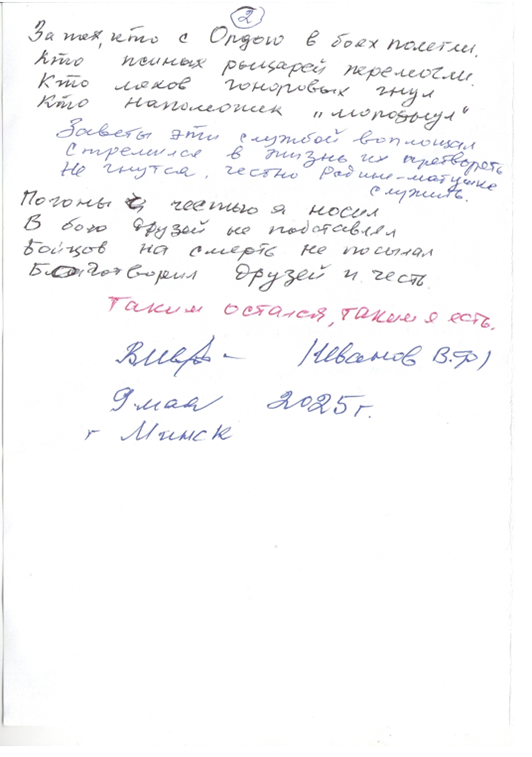 2
За тех, кто с Ордою в боях полегли.
Кто псиных рыцарей перемогли.
Кто ляхов гоноровых гнул
Кто Наполеошек „мороснул"
Заветы эти службой воплощал
Стремился в жизнь их претворять
Не гнутся, честно Родине-матушке
служить.
Погоны с честью я носил
В бою друзей не подставлял
Бойцов на смерть не посылал
Боготворил друзей и честь.
Таким остался, таким я есть.
(Иванов В.Ф)
9 мая 2025 г.
г Минск